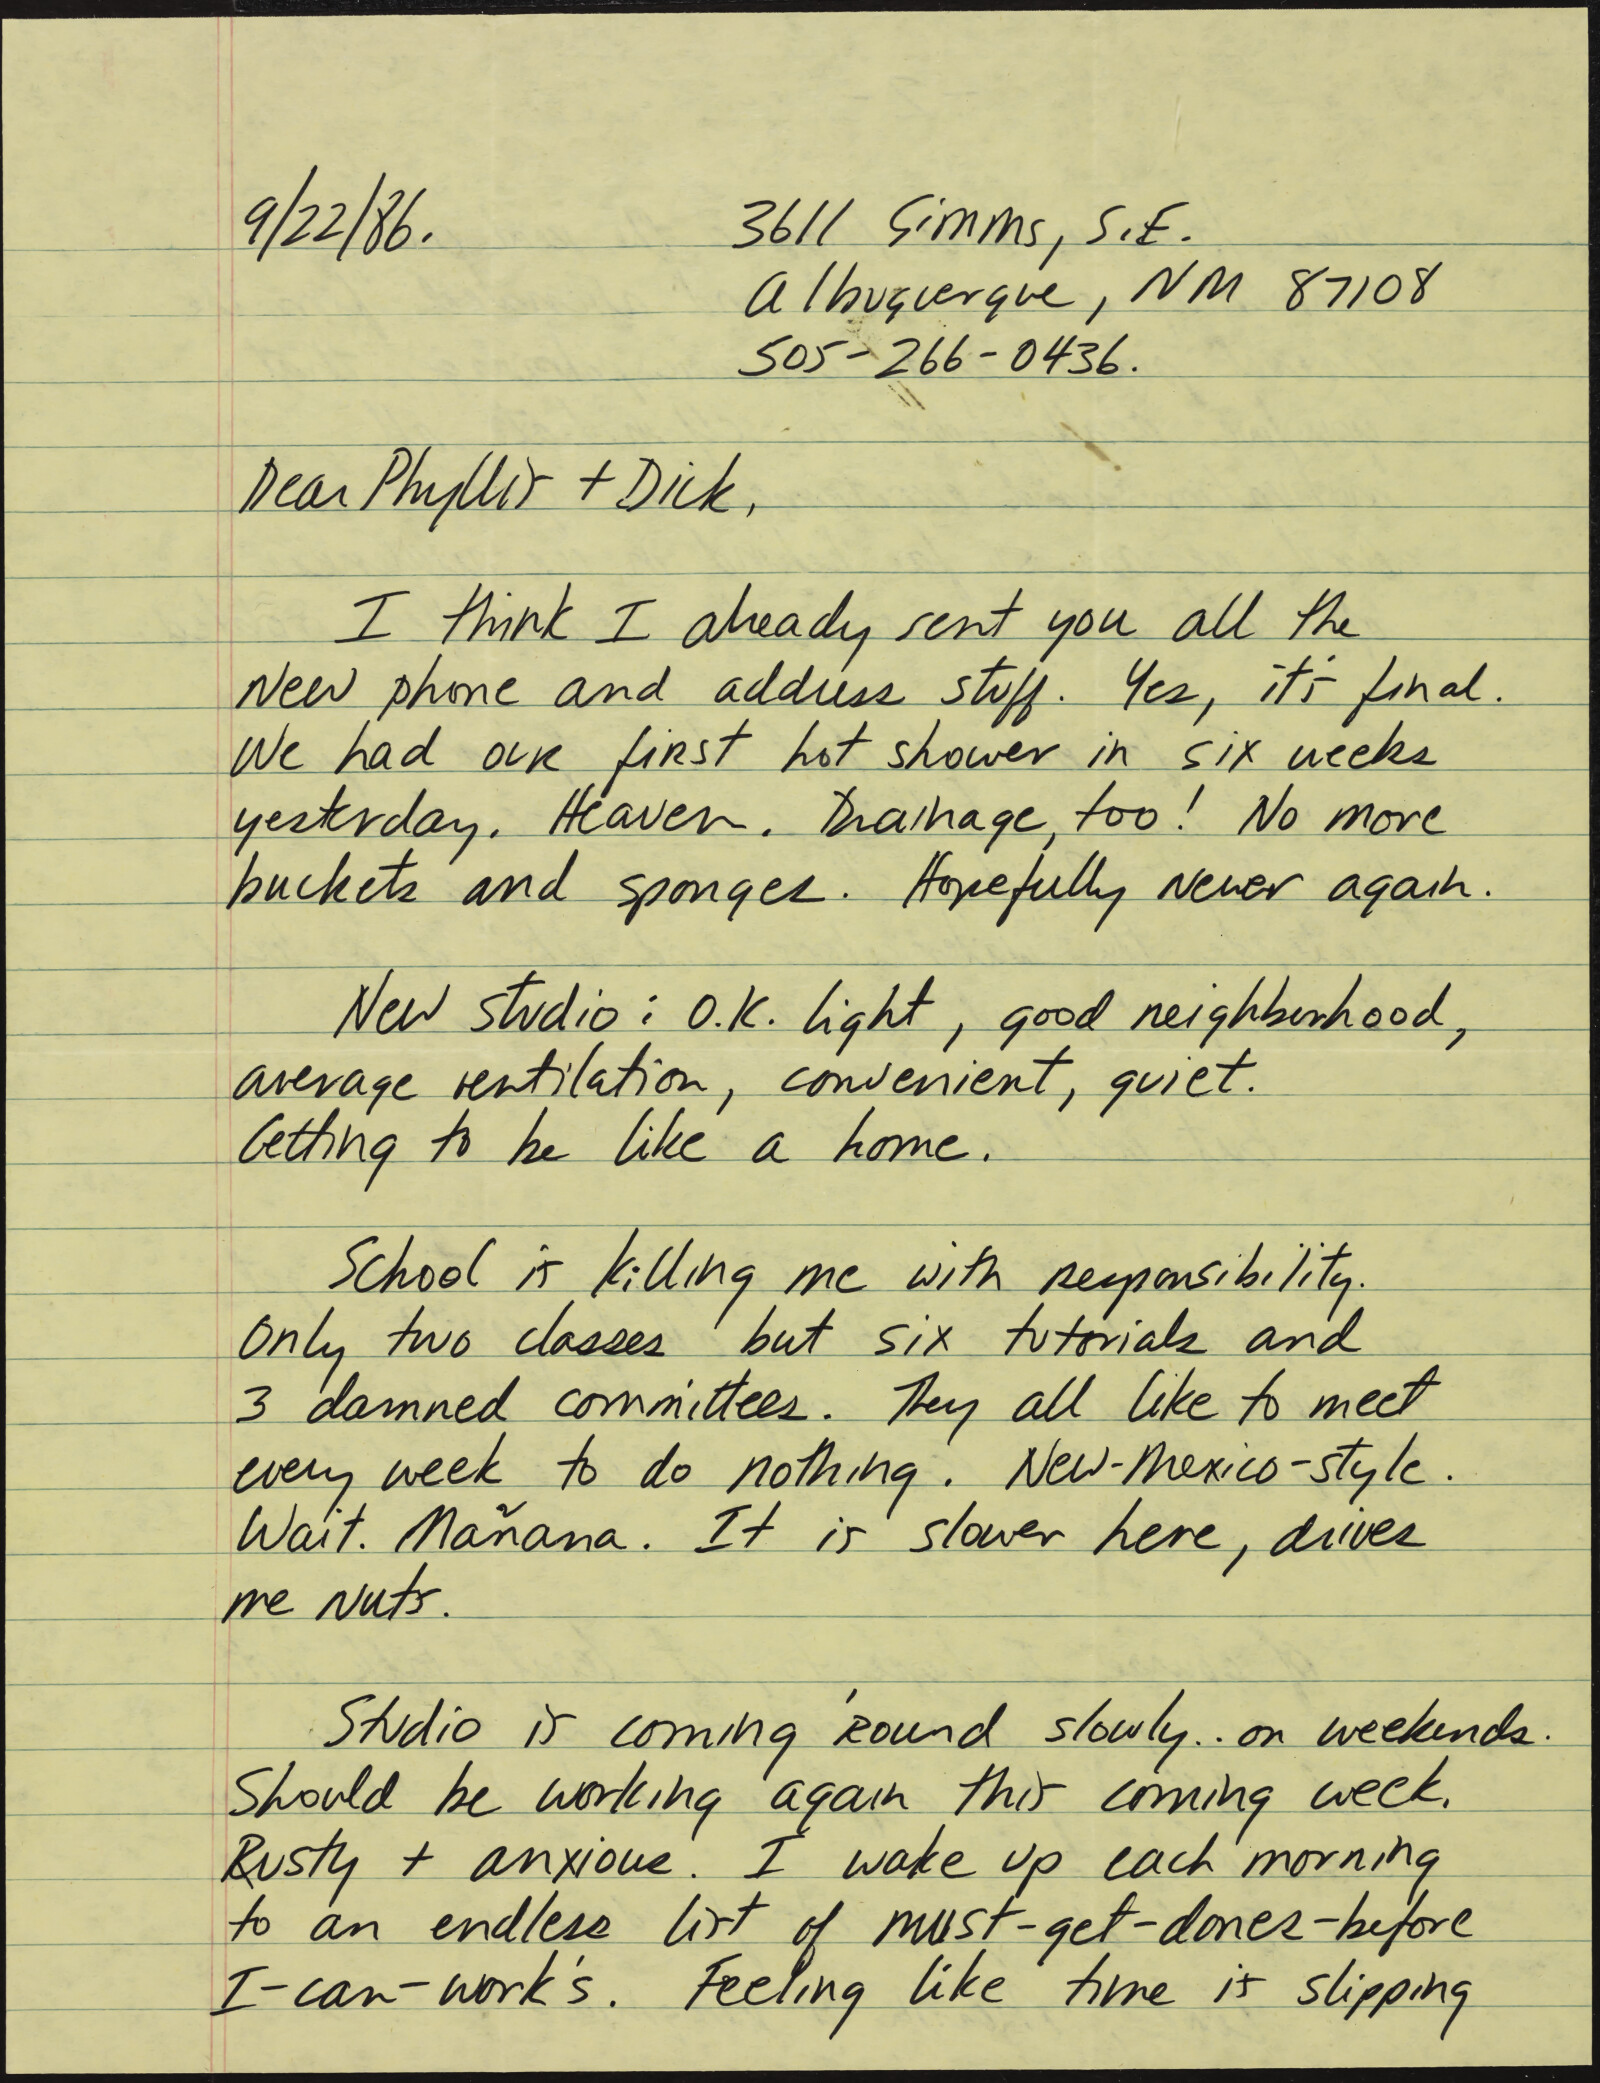 9/22/86.
3611 Simms, S.E.
Albuquerque, NM 87108
505-266-0436.
Dear Phyllis + Dick,
I think I already sent you all the
new phone and address stuff. Yes, it's final.
We had our first hot shower in six weeks
yesterday. Heaven. Drainage, too! No more
buckets and sponges. Hopefully never again.
New studio: O.K. light, good neighborhood,
average ventilation, convenient, quiet.
Getting to be like a home.
School is killing me with responsibility.
Only two classes but six tutorials and
3 damned committees. They all like to meet
every week to do nothing. New-Mexico-style.
Wait. Mañana. It is slower here, drives
me nuts.
Studio is coming 'round slowly.. on weekends.
Should be working again this coming week.
Rusty + anxious. I wake up each morning
to an endless list of must-get-dones-before
I-can-work's. Feeling like time is slipping